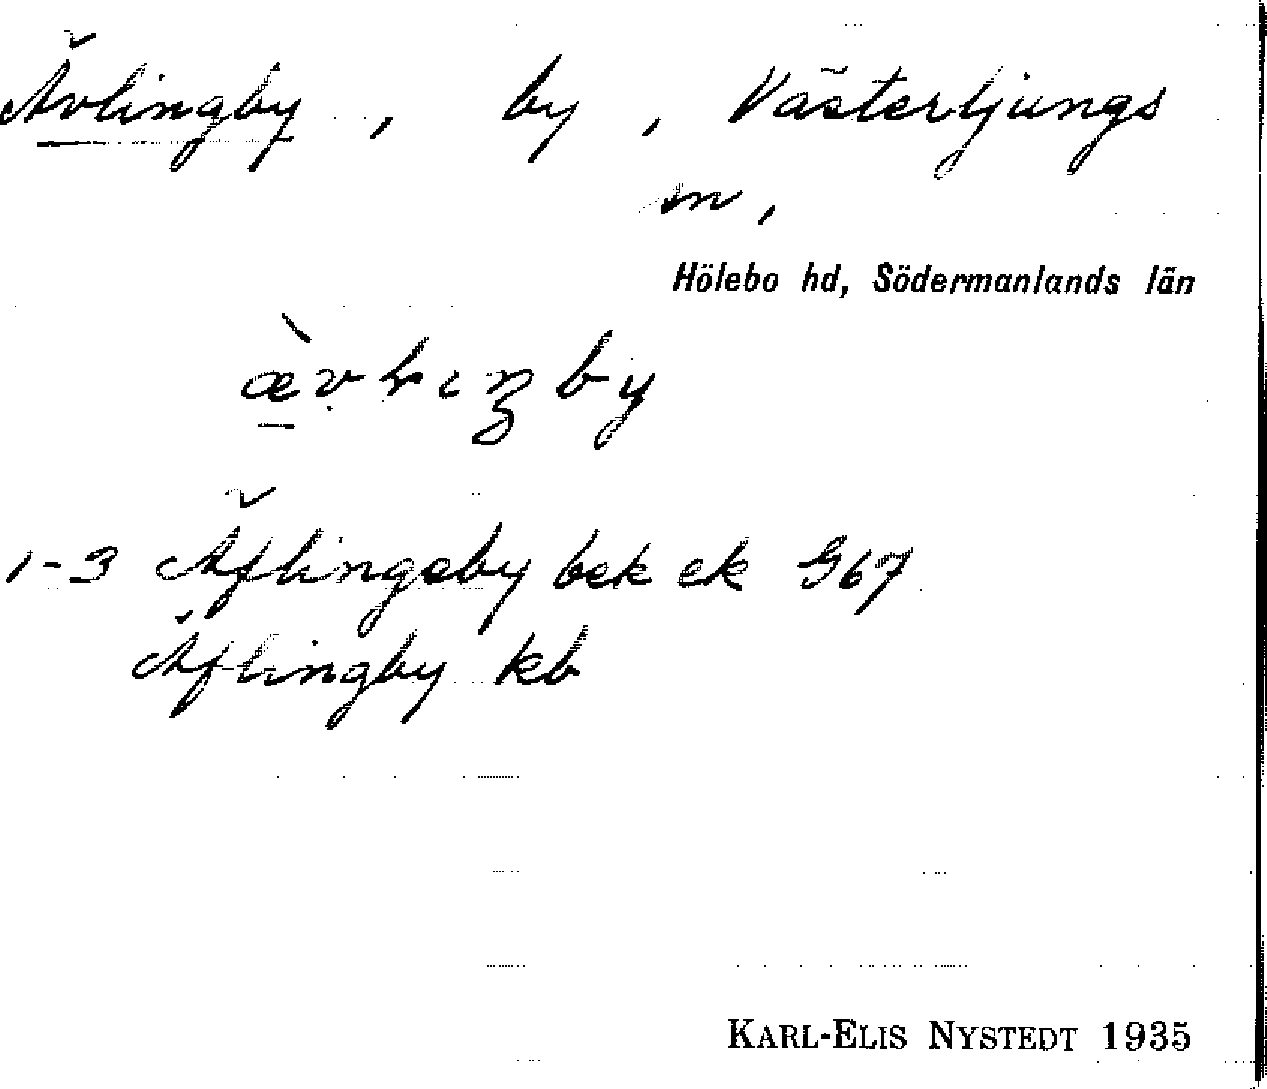 Ävlingby, by, Västerljungs
sn,
Hölebo hd, Södermanlands län
1-3 Äflingeby bek ek G67
Äflingby kb
KARL-ELIS NYSTEDT 1935